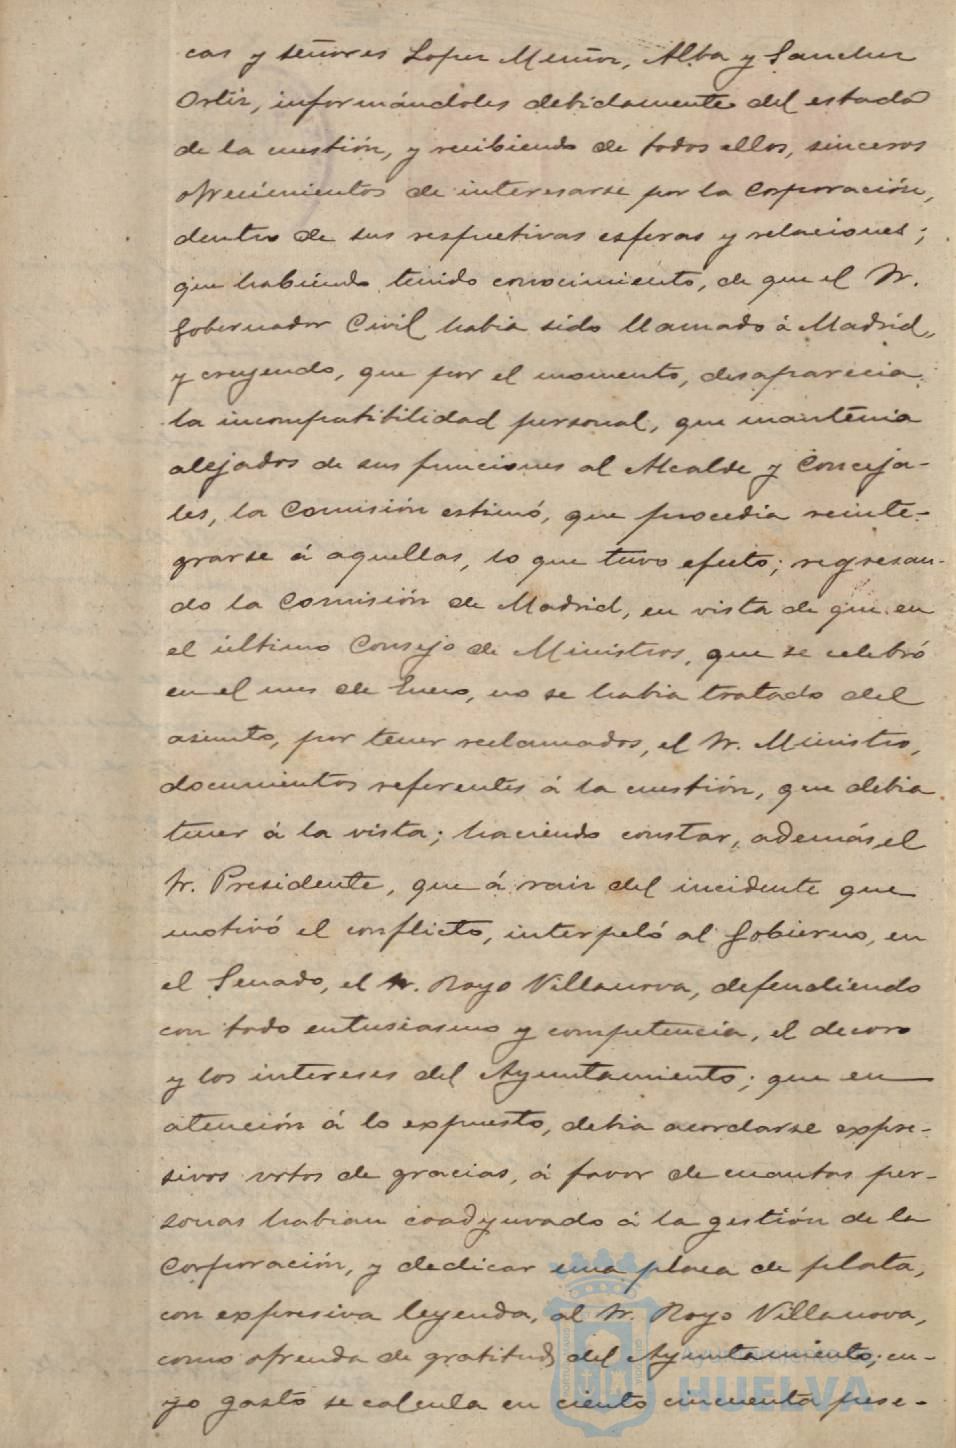 cas y señores Lopez Muñoz, Alba y Sanchez
Ortiz, informándoles debidamente del estado
de la cuestión, y recibiendo de todos ellos, sinceros
ofrecimientos de interesarse por la Corporación,
dentro de sus respectivas esferas y relaciones;
que habiendo tenido conocimiento, de que el Sr.
Gobernador Civil habia sido llamado á Madrid,
y creyendo, que por el momento, desaparecia
la incompatibilidad personal, que mantenia
alejados de sus funciones al Alcalde y Conceja-
les, la Comisión estimó, que procedia reinte-
grarse á aquellas, lo que tuvo efecto; regresan-
do la Comisión de Madrid, en vista de que en
el último Consejo de Ministros, que se celebró
en el mes de Enero, no se habia tratado del
asunto, por tener reclamados, el Sr. Ministro,
documentos referentes á la cuestión, que debia
tener á la vista; haciendo constar, además, el
Sr. Presidente, que á raiz del incidente que
motivó el conflicto, interpeló al Gobierno, en
el Senado, el Sr. Royo Villanova, defendiendo
con todo entusiasmo y competencia, el decoro
y los intereses del Ayuntamiento; que en
atención á lo expuesto, debia acordarse expre-
sivos votos de gracias, á favor de cuantas per-
sonas habian coadyuvado á la gestión de la
Corporación, y dedicar una placa de plata,
con expresiva leyenda, al Sr. Royo Villanova,
como ofrenda de gratitud del Ayuntamiento; cu-
yo gasto se calcula en ciento cincuenta pese-
HUELVA